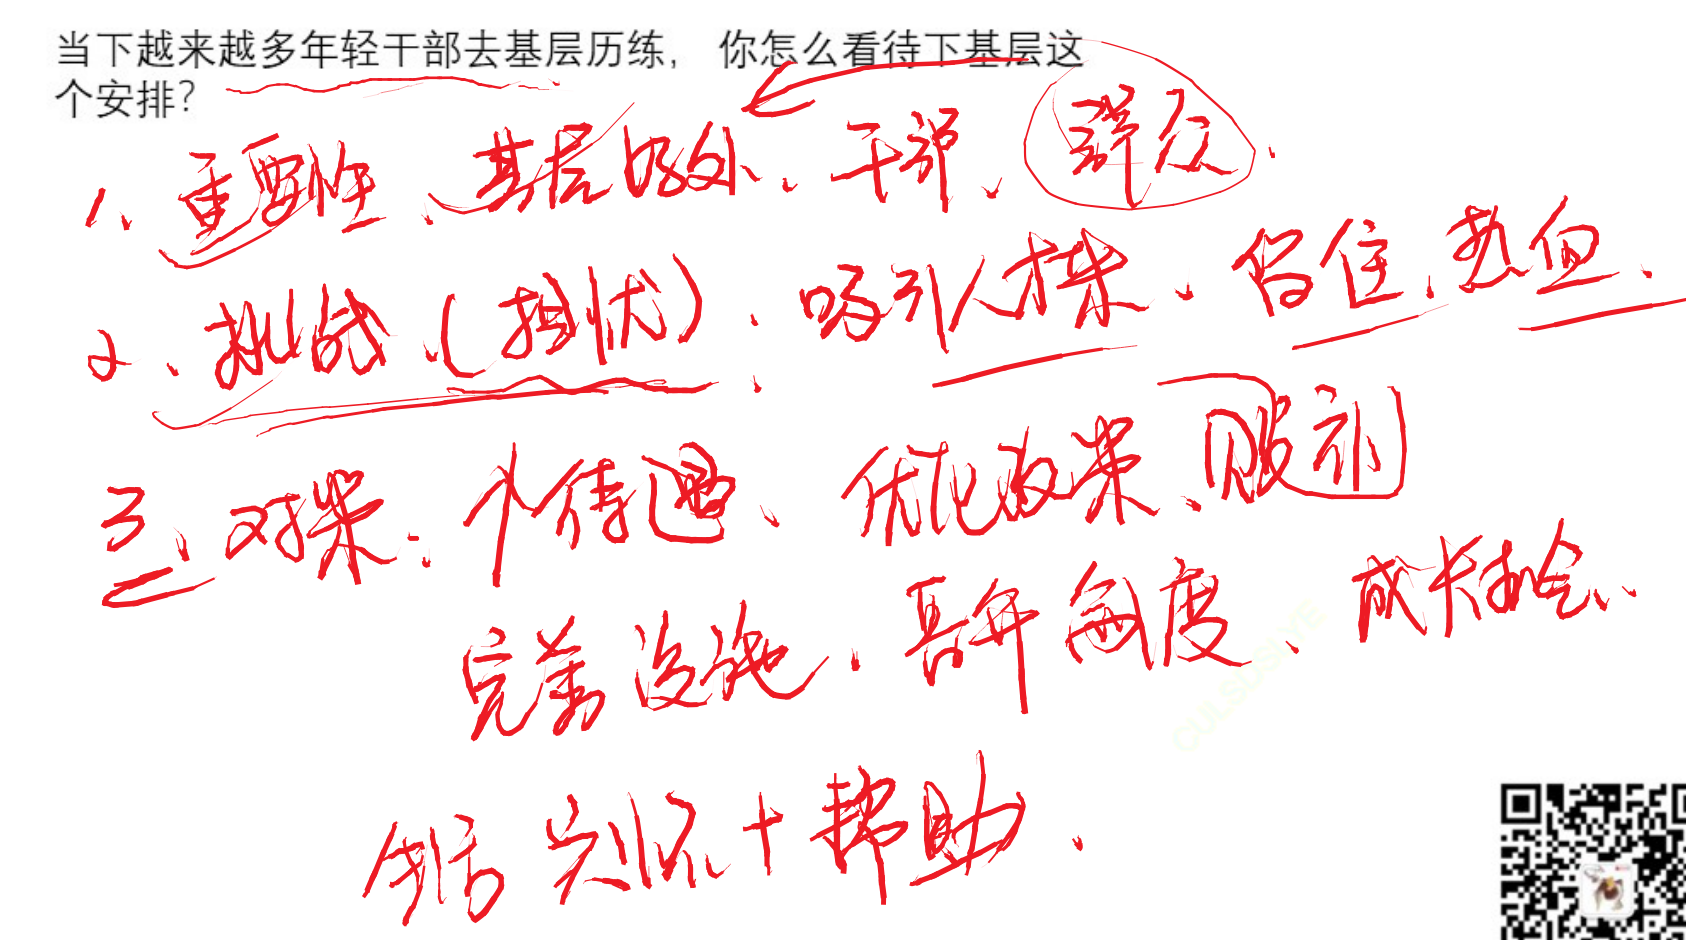 当下越来越多年轻干部去基层历练， 你怎么看待下基层这
个安排？
1、重要性、基层好处、干部、群众、
2、挑战、（担忧）：吸引人才来、留住、热血、
三、对策：个待遇、优化政策、服补
完善设施、晋升制度、成长机会、
生活关怀+帮助、
CULSDSLVE